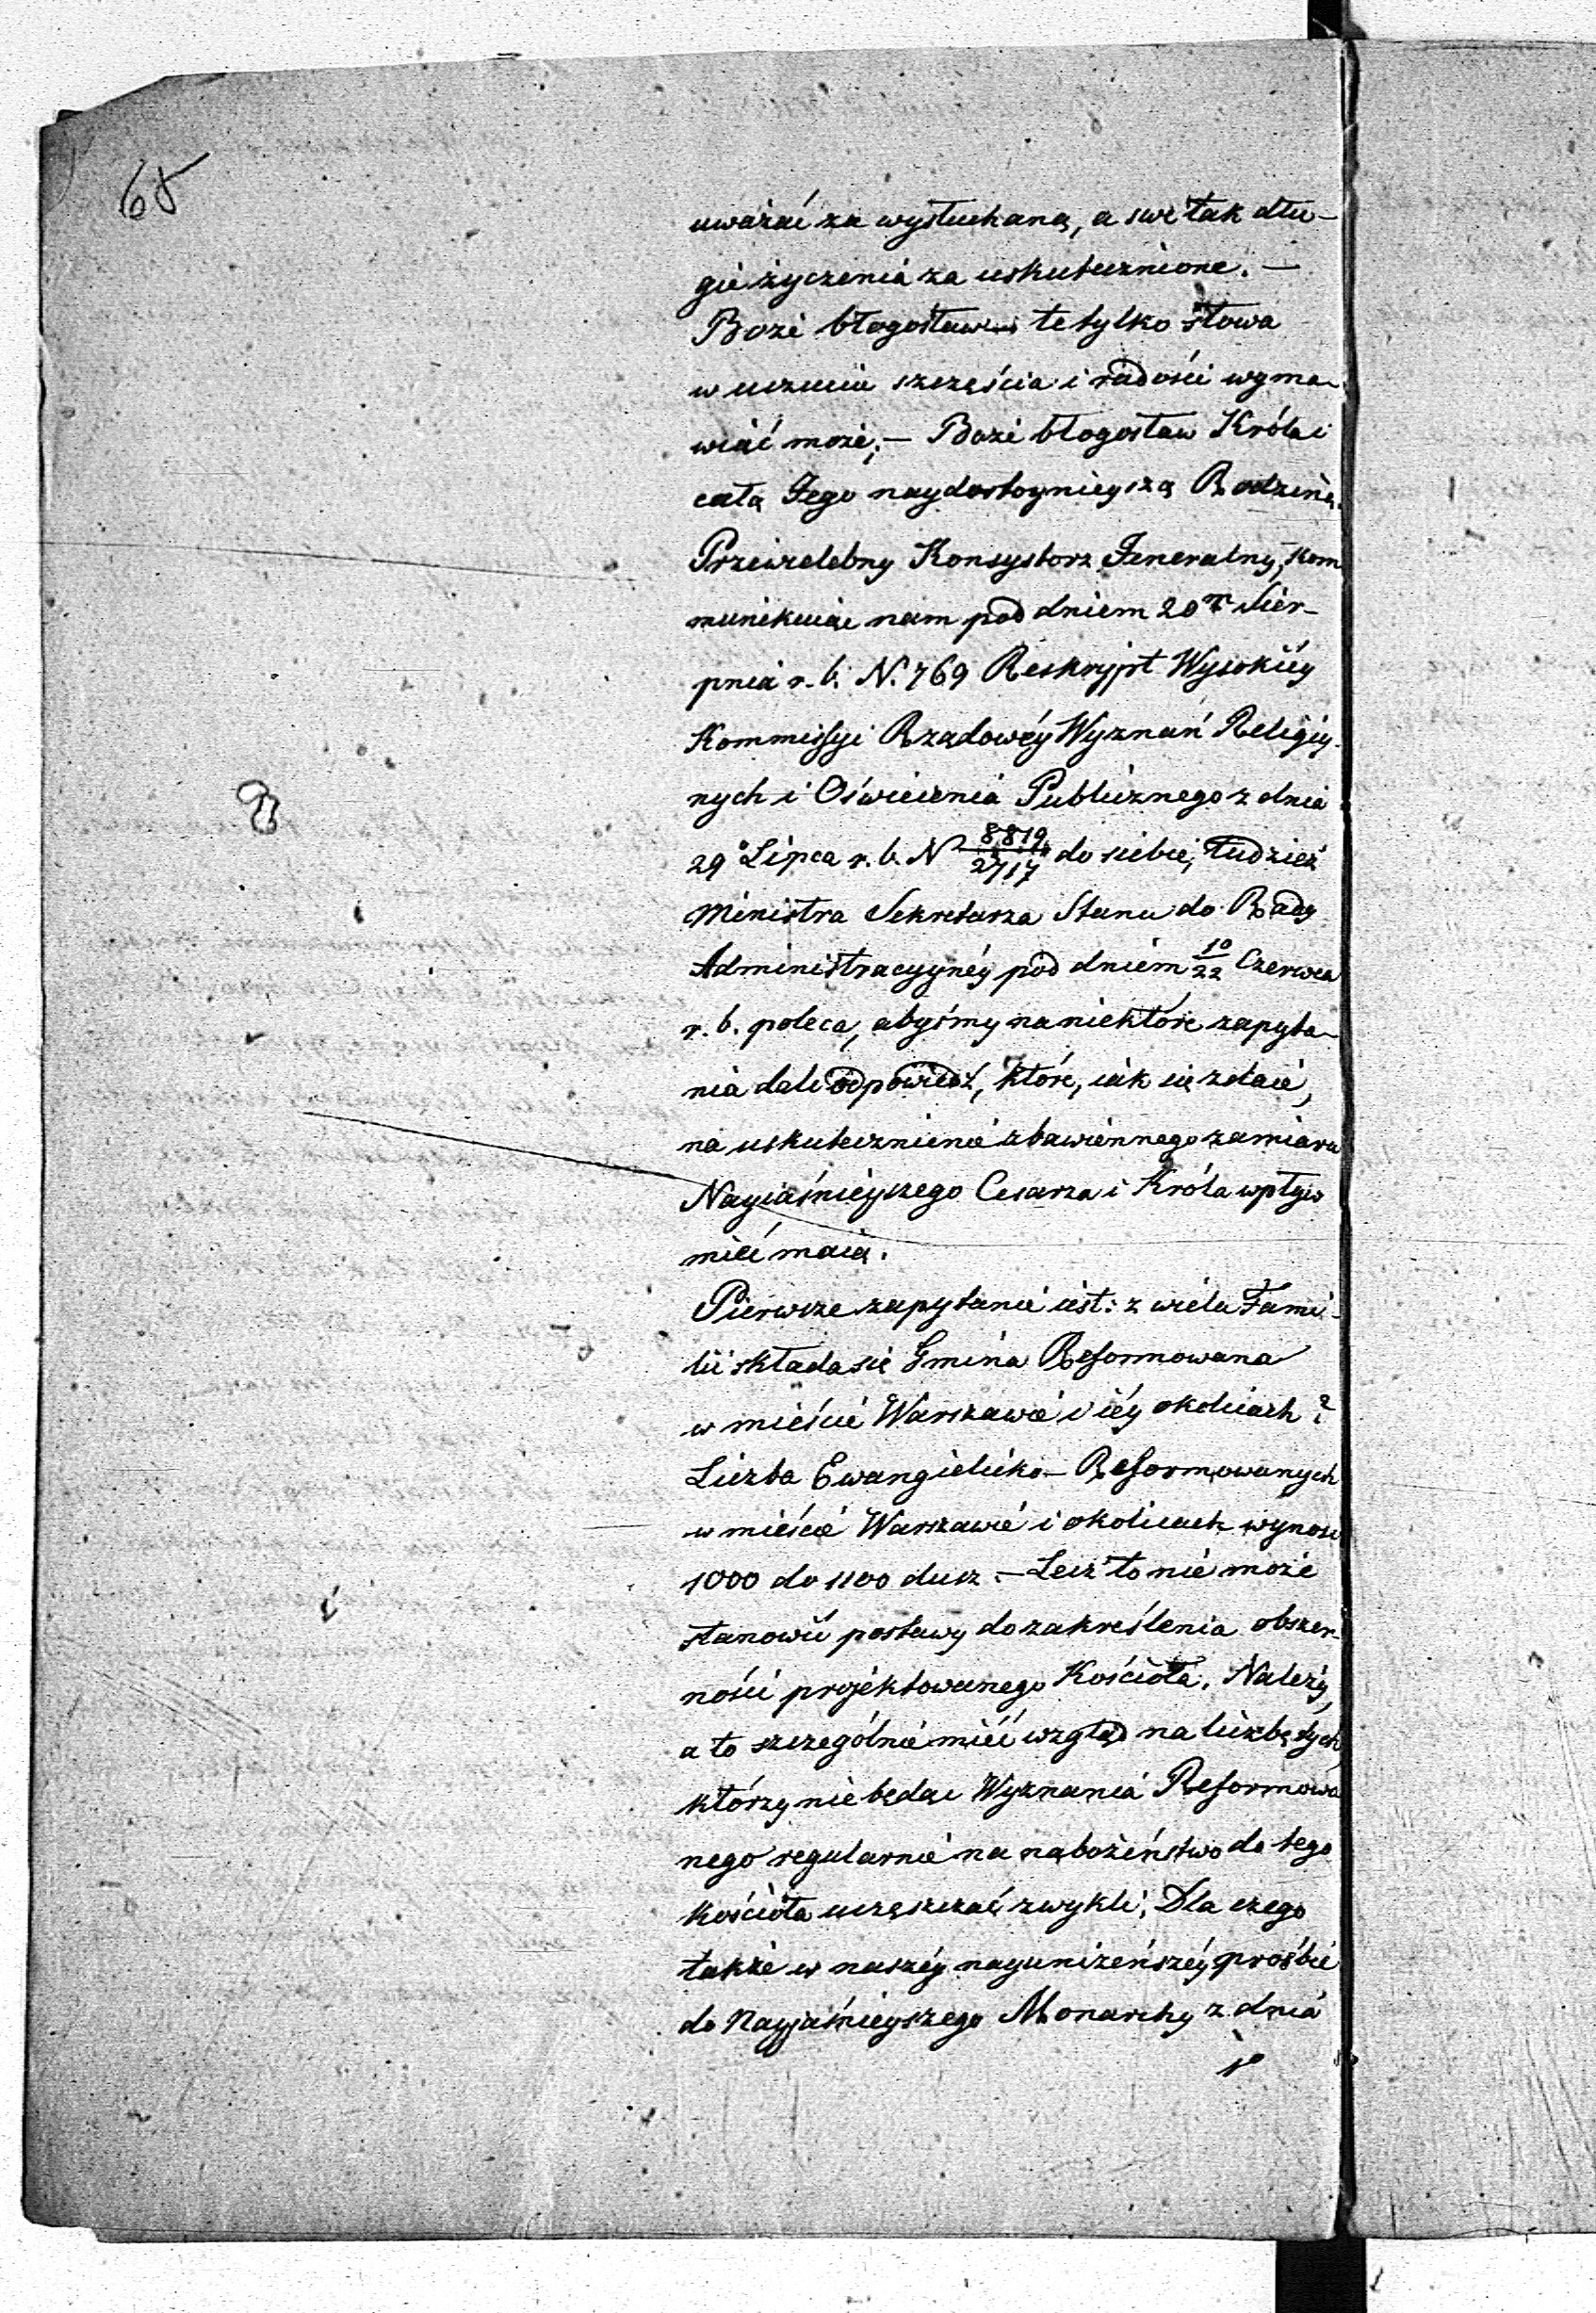 65
uważać za wysłuchaną, a swe tak dłu-
gie życzenia za uskutecznione. —
Boże błogosław te tylko słowa
w uczuciu szczęścia i radości wyma-
wiać może; — Boże błogosław Króla i
całą Jego naydostoynieyszą Rodzinę.
Przewielebny Konsystorz Jeneralny, kom
munikuiąc nam pod dniem 20 Sier-
pnia r. b. N. 769 Reskrypt Wysokiéy
Kommissyi Rządowéy Wyznań Religiy-
nych i Oświecenia Publicznego z dnia
29 Lipca r. b. N 8819/2717 do siebie, tudzież
Ministra Sekretarza Stanu do Rady
Administracyynéy pod dniem 10/22 Czerwca
r. b. poleca, abyśmy na niektóre zapyta-
nia dali odpowiedź, które, iak się zdaie,
na uskutecznienie zbawiennego zamiaru
Nayiaśnieyszego Cesarza i Króla wpływ
mieć maią.
Pierwsze zapytanie iest: z wielu Fami-
lii składa się Gmina Reformowana
w mieście Warszawie i iéy okolicach?
Liczba Ewangielicko-Reformowanych
w mieście Warszawie i okolicach wynosi
1000 do 1100 dusz. — Lecz to nie może
stanowić postawy do zakreślenia obszer-
ności projektowanego Kościoła. Należy,
a to szczególnie mieć wzgląd na liczbę tych,
którzy nie będąc Wyznania Reformowa
nego regularnie na nabożeństwo do tego
kościoła uczęszczać zwykli; Dla czego
także w naszéy nayuniżeńszéy prośbie
do Nayjaśnieyszego Monarchy z dnia